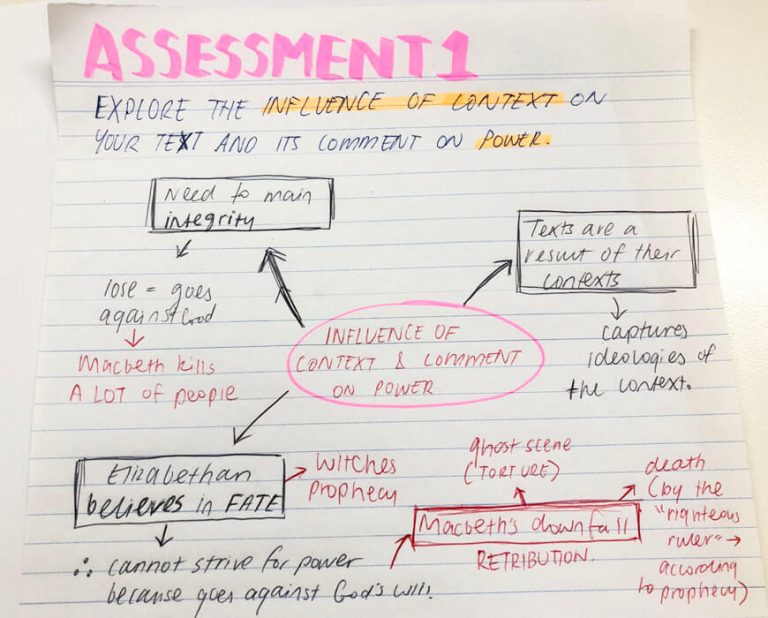 ASSESSMENT 1
EXPLORE THE INFLUENCE OF CONTEXT ON
YOUR TEXT AND ITS COMMENT ON POWER.
Need to main
integrity
lose = goes
against God
Macbeth kills
A LOT of people
Texts are a
result of their
contexts
captures
ideologies of
the context.
INFLUENCE OF
CONTEXT & COMMENT
ON POWER
Elizabethan
believes in FATE
witches
prophecy
∴ cannot strive for power
because goes against God's will.
ghost scene
("TORTURE)
Macbeth's downfall
RETRIBUTION.
death
(by the
"righteous
ruler" →
according
to prophecy)